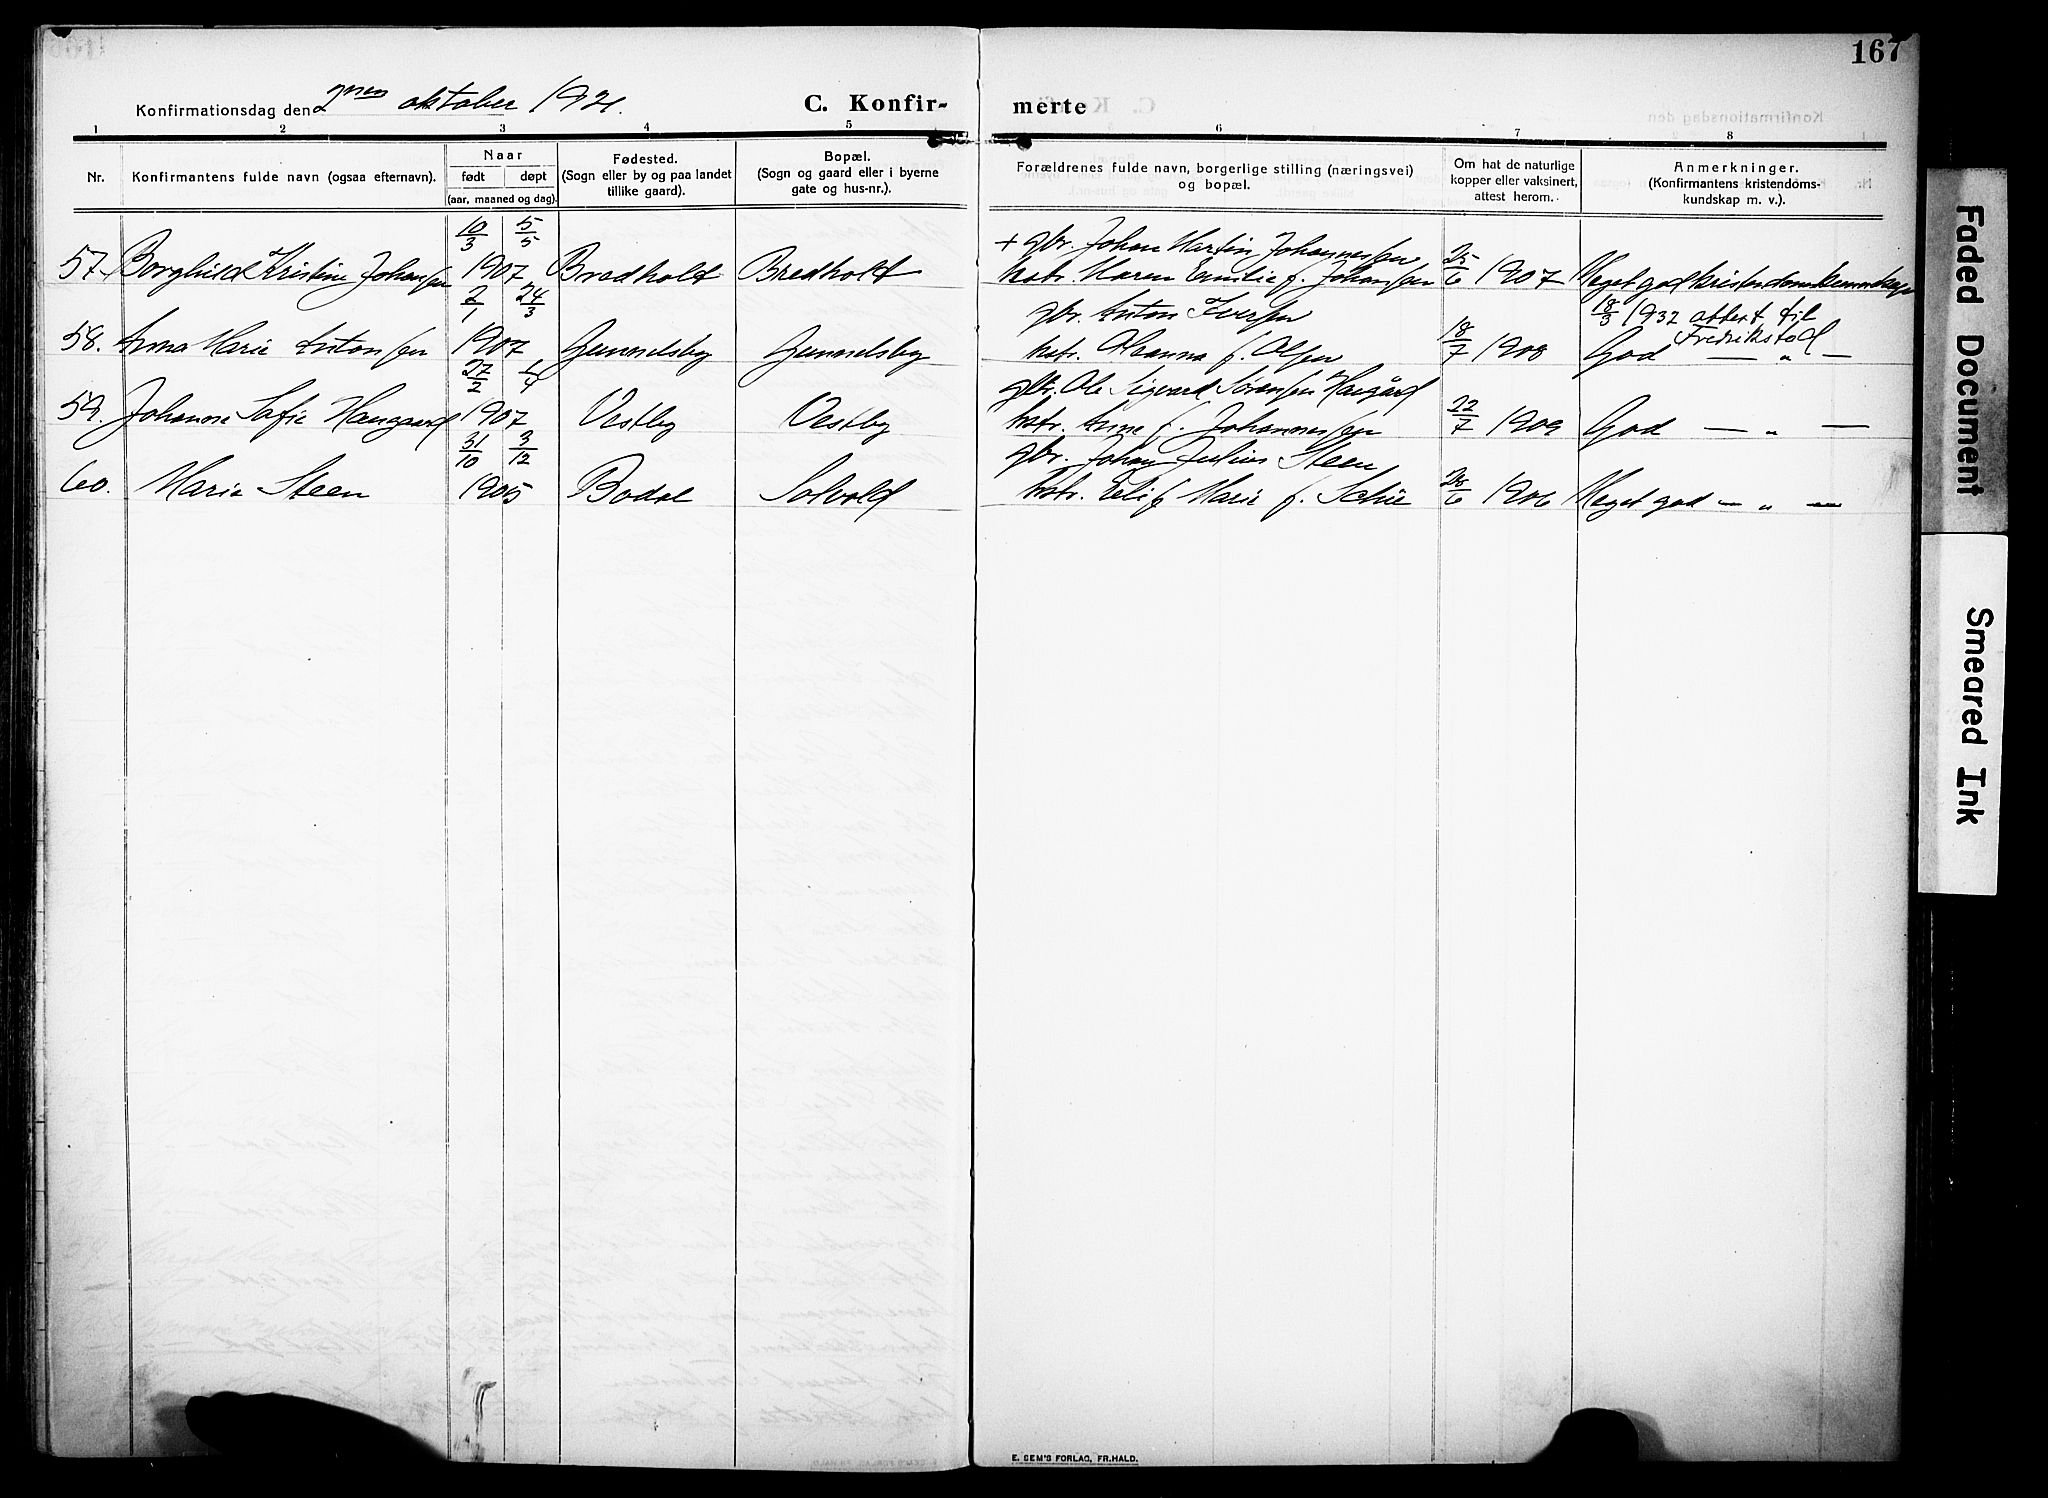 167
Konfirmationsdag den 2nen oktober 1921. C. Konfir- merte
1 2 3 4 5 6 7 8
Nr.
Konfirmantens fulde navn (ogsaa efternavn).
Naar
født døpt
(aar, maaned og dag).
Fødested.
(Sogn eller by og paa landet
tillike gaard).
Bopæl.
(Sogn og gaard eller i byerne
gate og hus-nr.).
Forældrenes fulde navn, borgerlige stilling (næringsvei)
og bopæl.
Om hat de naturlige
kopper eller vaksinert,
attest herom.
Anmerkninger.
(Konfirmantens kristendoms-
kundskap m. v.).
10/3 5/5 + gbr. Johan Martin Johannessen
57. Borghild Kristine Johansen 1907 Bredholt Bredholt hustr. Maren Emilie f. Johansen 25/6 1907 Meget god kristendomskunnskap
2/1 24/3 gbr. Anton Iversen 18/3 1932 attest til
Fredrikstad
58. Anna Marie Antonsen 1907 Gunnelsby Gunnelsby hustr. Olsen 18/7 1908 God — „ —
27/2 1/4 gbr. Ole Sigvard Sørensen Haugård
59. Johanne Sofie Haugaard 1907 Vestby Vestby hustr. Anne f. Johannessen 22/7 1909 God — „ —
31/10 3/12 gbr. Johan Julius Steen
60. Marie Steen 1905 Bodal Solvold hustr. Marie f. 28/6 1906 Meget god — „ —
E. SEM'S FORLAG, FR.HALD.
Faded Document
Smeared Ink